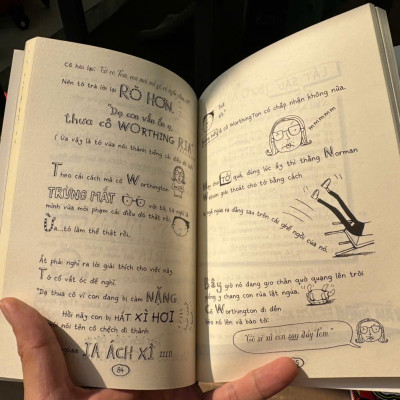 Cô hỏi lại:
Nên tớ trả lời lại RÕ HƠN,
"Dạ con vẫn ổn ạ,
thưa cô WORTHING RIA"
(Úi vậy là tớ vừa nói thành tiếng cái điều đó
Theo cái cách mà cô Worthington
TRỪNG MẮT
mình vừa mới phạm cái điều đó thật rồi.
Ừ...tớ làm thế thật rồi.
Ắt phải nghĩ ra lời giải thích cho việc này.
Tớ cố vắt óc để nghĩ.
"Dạ thưa cô vì con đang bị cảm NẶNG
Hồi này con bị HẮT XÌ HƠI
nói tên cô chệch đi thành
IA ÁCH XÌ !!!!!"
84
cô Worthington có chấp nhận không nữa.
mmmmm
TỚ quá, đúng lúc ấy thì thằng Norman
giải thoát cho tớ bằng cách
ngã ngửa ra đằng sau trên cái ghế ngồi của nó.
Bây giờ nó đang giơ chân quờ quạng lên trời
giống y chang con rùa lật ngửa.
Cô Worthington đi đến
nó lên và bảo tớ:
"Cô sẽ xử con sau đấy Tom."